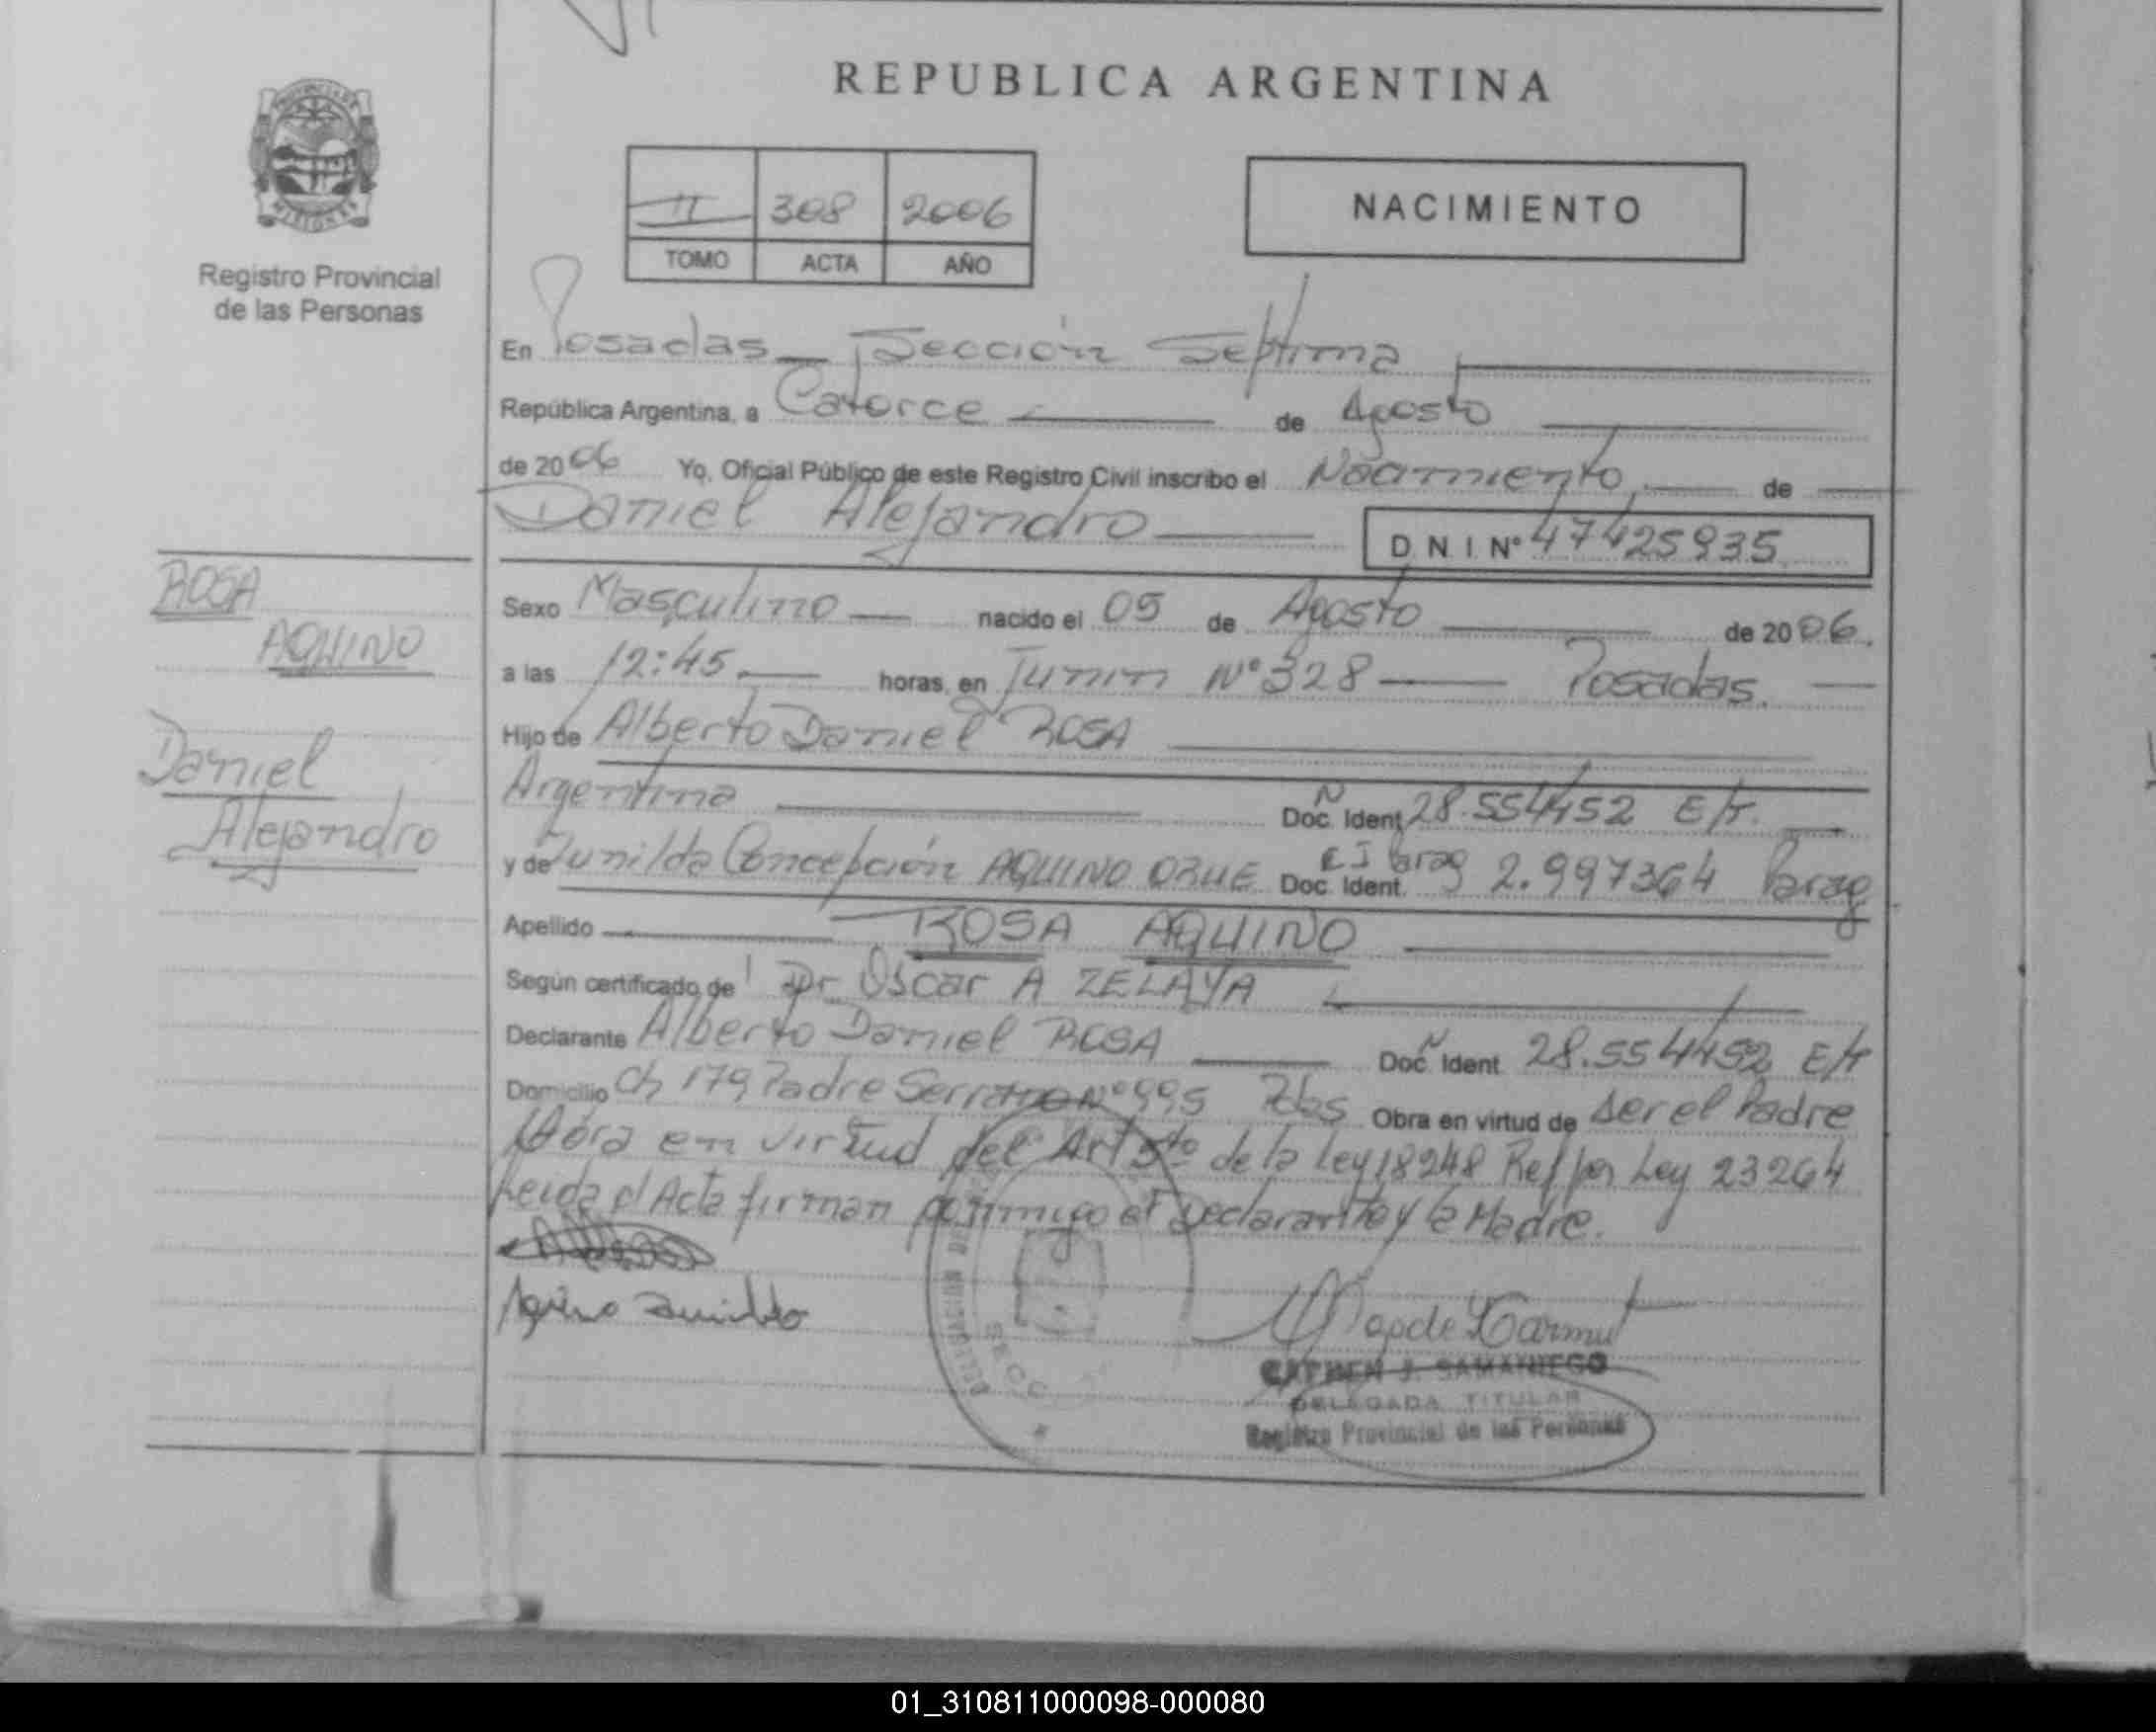 REPUBLICA ARGENTINA
PROVINCIA DE
MISIONES
Registro Provincial
de las Personas
II 308 2006
TOMO ACTA AÑO
NACIMIENTO
En Posadas Sección Septima
República Argentina, a Catorce de Agosto
de 2006 Yo, Oficial Público de este Registro Civil inscribo el Nacimiento, de
Daniel Alejandro D.N.I. Nº 47425935
ROSA
AQUINO
Daniel
Alejandro
Sexo Masculino nacido el 05 de Agosto de 2006.
a las 12:45 horas, en Junin Nº 328 Posadas.
Hijo de Alberto Daniel ROSA
Argentina Doc. Ident N 28.554452 E/T.
y de Zunilda Concepción AQUINO ORUE Doc. Ident. CI Parag 2.997364 Parag
Apellido ROSA AQUINO
Según certificado de Dr Oscar A ZELAYA
Declarante Alberto Daniel ROSA Doc. N Ident 28.554452 E/T
Domicilio Ch 179 Padre Serrano Nº 995 Pdas Obra en virtud de ser el Padre
Obra en virtud del Art 5to de la Ley 18248 Ref por Ley 23264
Leida el Acta firman conmigo el Declarante y la Madre.
Aquino Zunilda
DELEGACION DE
SECC
CARMEN J. SAMANIEGO
DELEGADA TITULAR
Registro Provincial de las Personas
01_310811000098-000080